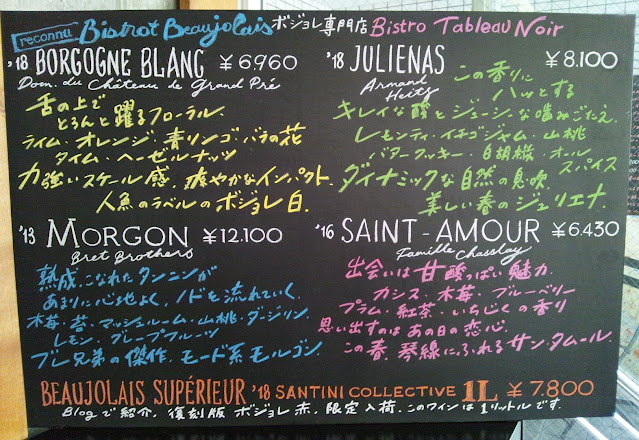 reconnu Bistrot Beaujolais ボジョレ専門店 Bistro Tableau Noir
'18 BORGOGNE BLANC ¥6960
Dom. du Château de Grand Pré
舌の上で
とろんと躍るフローラル、
ライム・オレンジ・青リンゴ・バラの花
タイム・ヘーゼルナッツ
力強いスケール感、爽やかなインパクト、
人魚のラベルのボジョレ白。
'18 JULIENAS ¥8.100
Armand
Heitz
この香りに
ハッとする
キレイな酸とジューシーな噛みごたえ、
レモンティ・イチゴジャム・山桃
バタークッキー・白胡椒・オール
スパイス
ダイナミックな自然の息吹、
美しい春のジュリエナ。
'13 MORGON ¥12.100
Bret Brothers
熟成、こなれたタンニンが
あまりに心地よく、ノドを流れていく、
木苺・苔・マッシュルーム・山桃・ダージリン
レモン・グレープフルーツ
ブレ兄弟の傑作、モード系モルゴン。
'16 SAINT-AMOUR ¥6.430
Famille Chasslay
出会いは甘酸っぱい魅力、
カシス・木苺・ブルーベリー
プラム・紅茶・いちじくの香り
思い出すのはあの日の恋心、
この春、琴線にふれるサン・タムール。
BEAUJOLAIS SUPÉRIEUR '18 SANTINI COLLECTIVE 1L ¥7.800
Blogで紹介、復刻版ボジョレ赤、限定入荷、このワインは1リットルです。